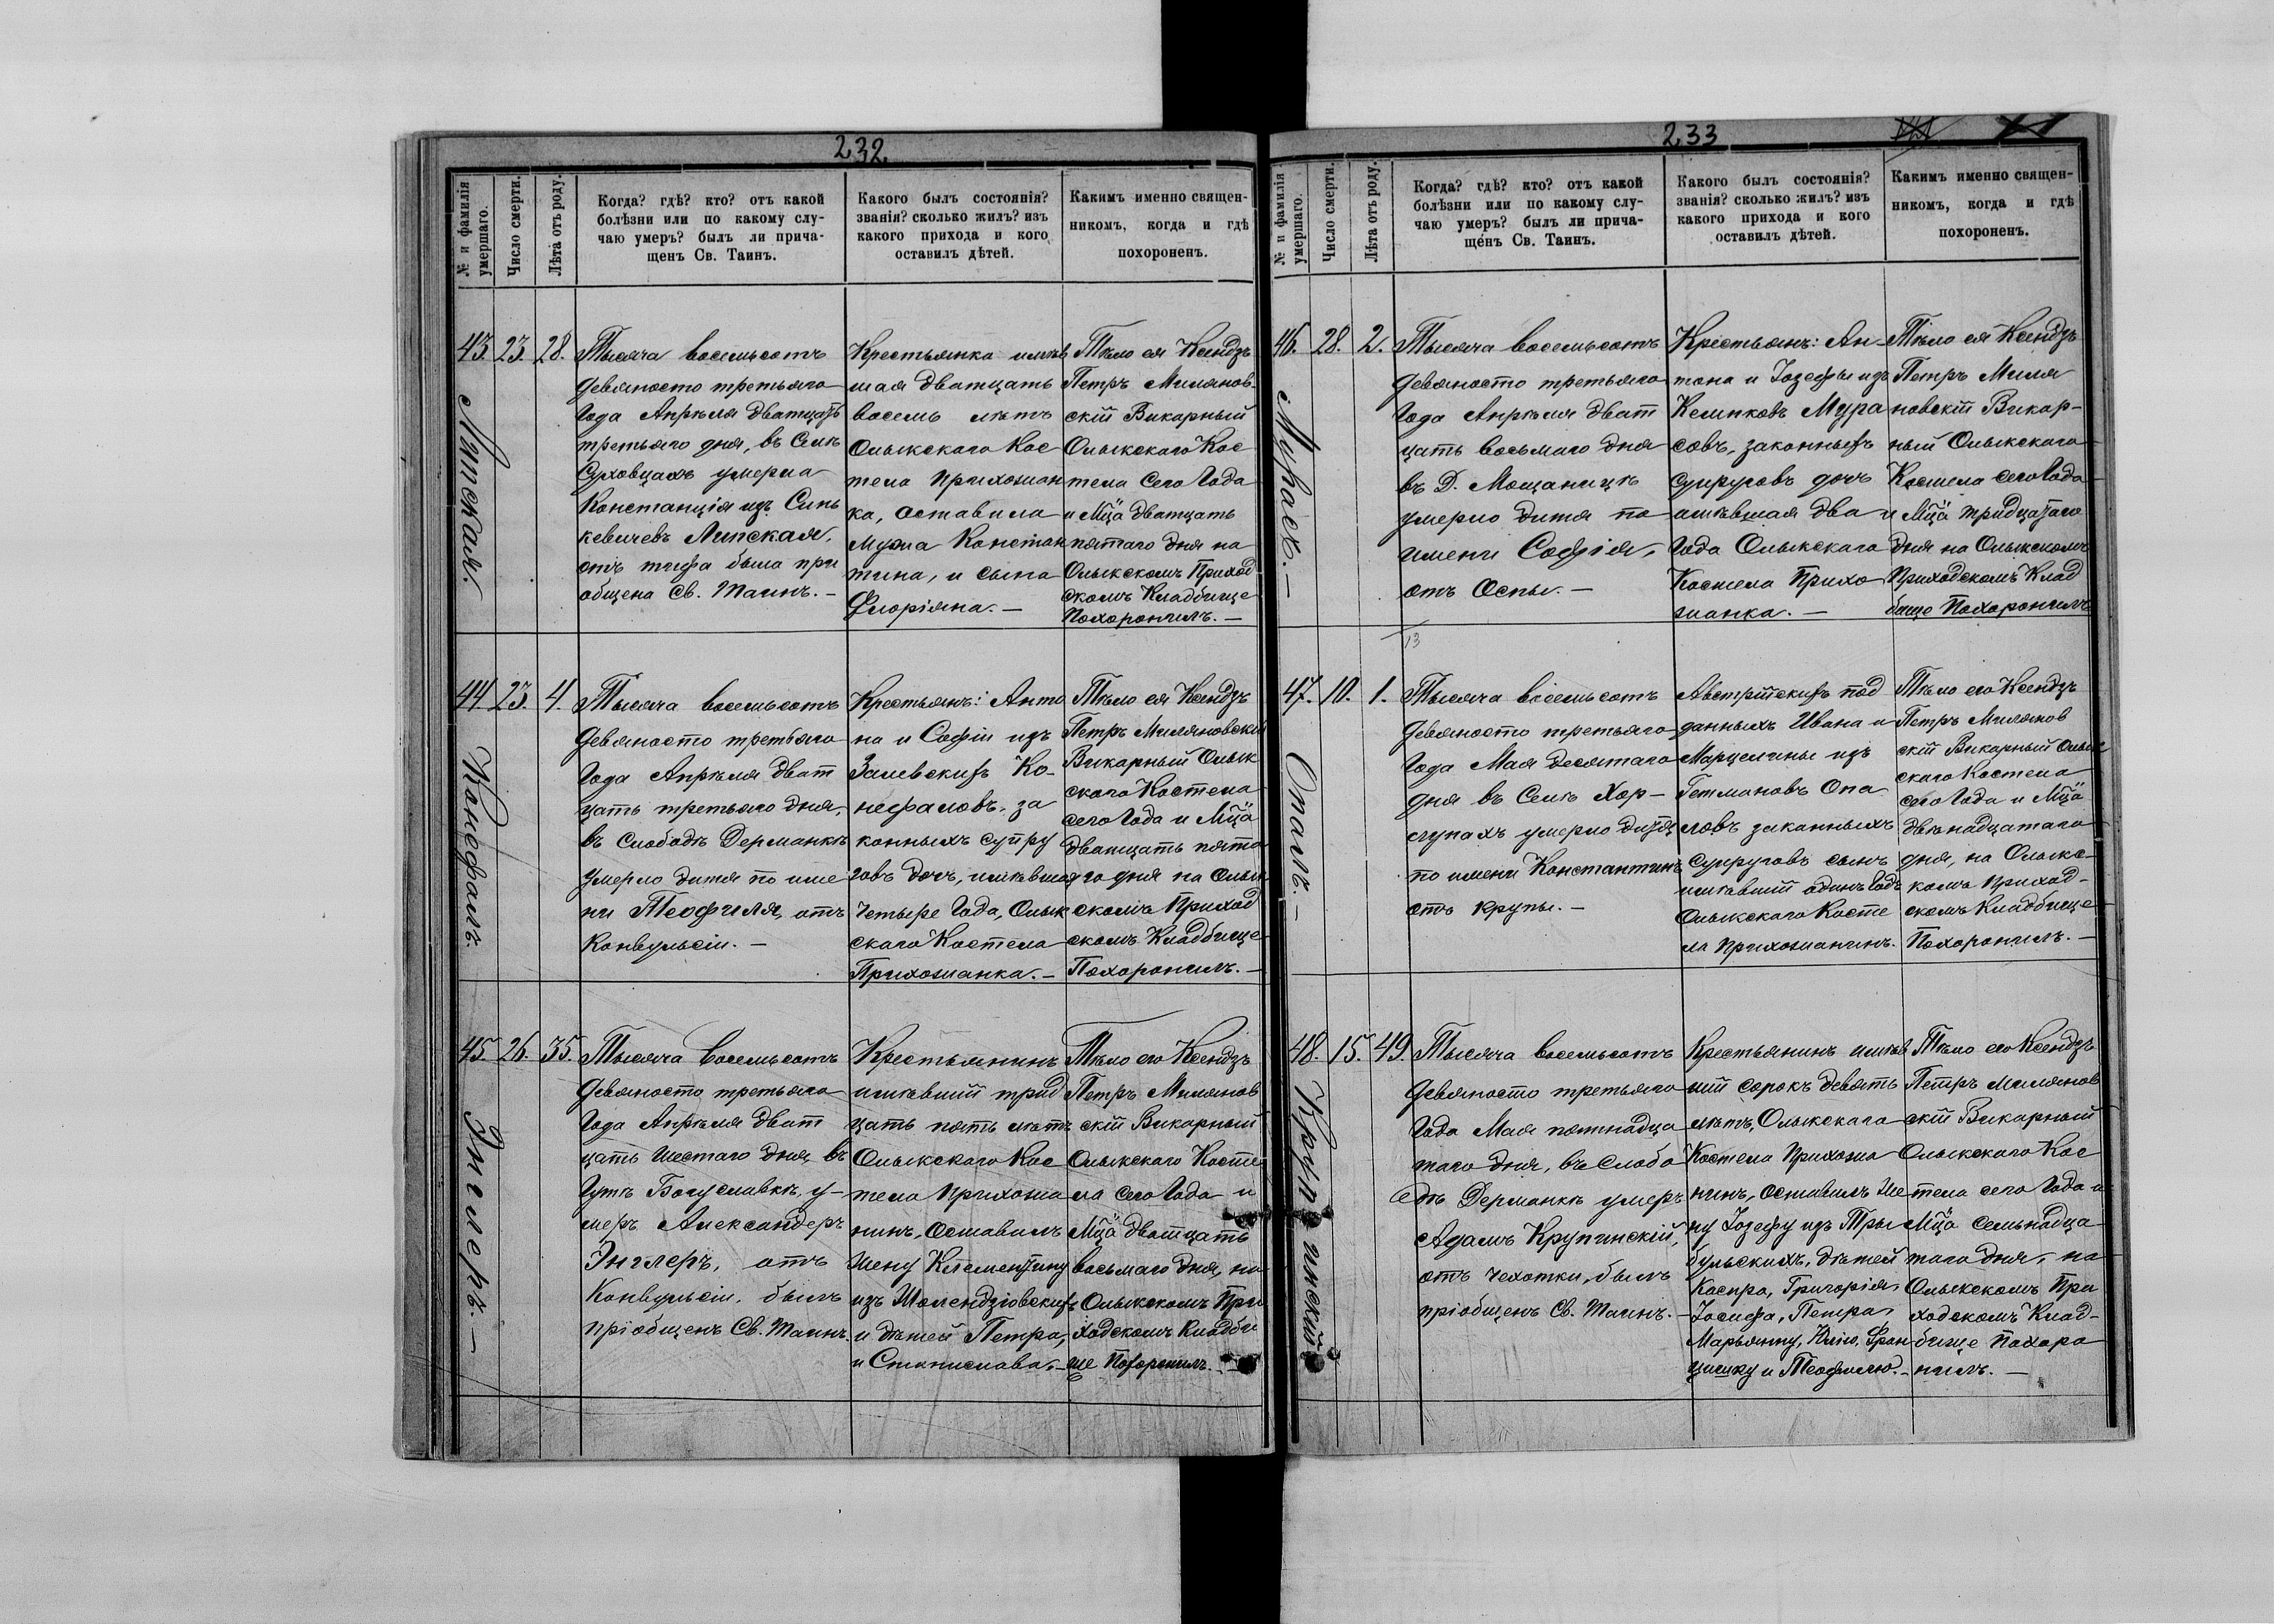 232
№ и фамилія умершаго.
Число смерти.
Лѣта отъ роду.
Когда? гдѣ? кто? отъ какой
болѣзни или по какому слу-
чаю умеръ? былъ ли прича-
щенъ Св. Таинъ.
Какого былъ состоянія?
званія? сколько жилъ? изъ
какого прихода и кого
оставилъ дѣтей.
Какимъ именно священ-
никомъ, когда и гдѣ
похороненъ.
43. 23. 28.
Липская.
Тысяча восемьсотъ
девяносто третьяго
Года Апрѣля дватцать
третьяго дня, въ Селѣ
Суховцахъ умерла
Констанція изъ Синь
кевичевъ Липская,
отъ тифа была прі
общена Св. Таинъ. —
Крестьянка имѣв
шая дватцать
восемь лѣтъ
Олыкскаго Кос
тела Прихожан
ка, оставила
Мужа Констан
тина, и сына
Флоріяна. —
Тѣло ея Ксендзъ
Петръ Милянов-
скій Викарный
Олыкскаго Кос
тела Сего Года
и Мца дватцать
пятаго дня на
Олыкскомъ Приход
скомъ Кладбище
Похоронилъ. —
44. 23. 4.
Конефалъ.
Тысяча восемьсотъ
девяносто третьяго
Года Апрѣля дват
цать третьяго дня,
въ Слободѣ Дерманкѣ
умерло дитя по име
ни Теофиля, отъ
Конвульсіи. —
Крестьянъ: Анто
на и Софіи изъ
Залевскихъ Ко-
нефаловъ, за
конныхъ супру
говъ дочь, имѣвшая
четыре Года, Олык
скаго Костела
Прихожанка. —
Тѣло ея Ксендзъ
Петръ Миляновскій
Викарный Олык
скаго Костела
сего Года и Мца
дватцать пята
го дня на Олык
скомъ Приход
скомъ Кладбище
Похоронилъ. —
45. 26. 35.
Энглеръ. —
Тысяча восемьсотъ
девяносто третьяго
Года Апрѣля дват
цать шестаго дня, въ
Гутѣ Богуславкѣ, у-
меръ Александеръ
Энглеръ, отъ
Конвульсіи, былъ
пріобщенъ Св. Таинъ.
Крестьянинъ
имѣвшій трид
цать пять лѣтъ
Олыкскаго Кос
тела Прихожа
нинъ, Оставилъ
жену Клементину
изъ Шолендзіовскихъ
и дѣтей Петра,
и Станислава. —
Тѣло его Ксендзъ
Петръ Милянов
скій Викарный
Олыкскаго Косте
ла Сего Года и
Мца дватцать
восьмаго дня, на
Олыкскомъ При
ходскомъ Кладби
ще Похоронилъ.
233
№ и фамилія умершаго.
Число смерти.
Лѣта отъ роду.
Когда? гдѣ? кто? отъ какой
болѣзни или по какому слу-
чаю умеръ? былъ ли прича-
щенъ Св. Таинъ.
Какого былъ состоянія?
званія? сколько жилъ? изъ
какого прихода и кого
оставилъ дѣтей.
Какимъ именно священ-
никомъ, когда и гдѣ
похороненъ.
46. 28. 2.
Тысяча восемьсотъ
девяносто третьяго
Года Апрѣля дват
цать восьмаго дня
въ Д. Мощаницѣ
умерло дитя по
имени Софія,
отъ Оспы. —
Крестьянъ: Ан
тона и Іозефы изъ
Мура
совъ, законныхъ
супруговъ дочь
имѣвшая два
Года Олыкскаго
Костела Прихо
жанка. —
Тѣло ея Ксендзъ
Петръ Миля
новскій Викар-
ный Олыкскаго
Костела сего Года
и Мца тридцатаго
дня на Олыкскомъ
Приходскомъ Клад
бище Похоронилъ
13
47. 10. 1.
Опалъ. —
Тысяча восемьсотъ
девяносто третьяго
Года Мая десятаго
дня въ Селѣ Хор-
лупахъ умерло дитя
по имени Константинъ
отъ крупы. —
Австрійскихъ под
данныхъ Ивана и
Марцелины изъ
Гетмановъ Опа
ловъ законныхъ
Супруговъ сынъ
имѣвшій одинъ Годъ
Олыкскаго Косте
ла Прихожанинъ.
Тѣло его Ксендзъ
Петръ Милянов
скій Викарный Олык
скаго Костела
сего Года и Мца
двѣнадцатаго
дня, на Олыкс-
комъ Приход-
скомъ Кладбище
Похоронилъ. —
48. 15. 49.
Крупинскій
Тысяча восемьсотъ
девяносто третьяго
Года Мая пятнадца
таго дня, въ Слобо
дѣ Дерманкѣ умеръ
Адамъ Крупинскій,
отъ чехотки, былъ
пріобщенъ Св. Таинъ. —
Крестьянинъ имѣв
шій сорокъ девять
лѣтъ, Олыкскаго
Костела Прихожа
нинъ, оставилъ же
ну Іозефу изъ Тры
бульскихъ, дѣтей
Каспра, Григорія,
Іосифа, Петра,
Марьянну, Юлію, Фран
цишку и Теофилю. —
Тѣло его Ксендзъ
Петръ Милянов
скій Викарный
Олыкскаго Кос
тела сего Года и
Мца семьнадца
таго дня, на
Олыкскомъ При
ходскомъ Клад-
бище Похоро
нилъ. —